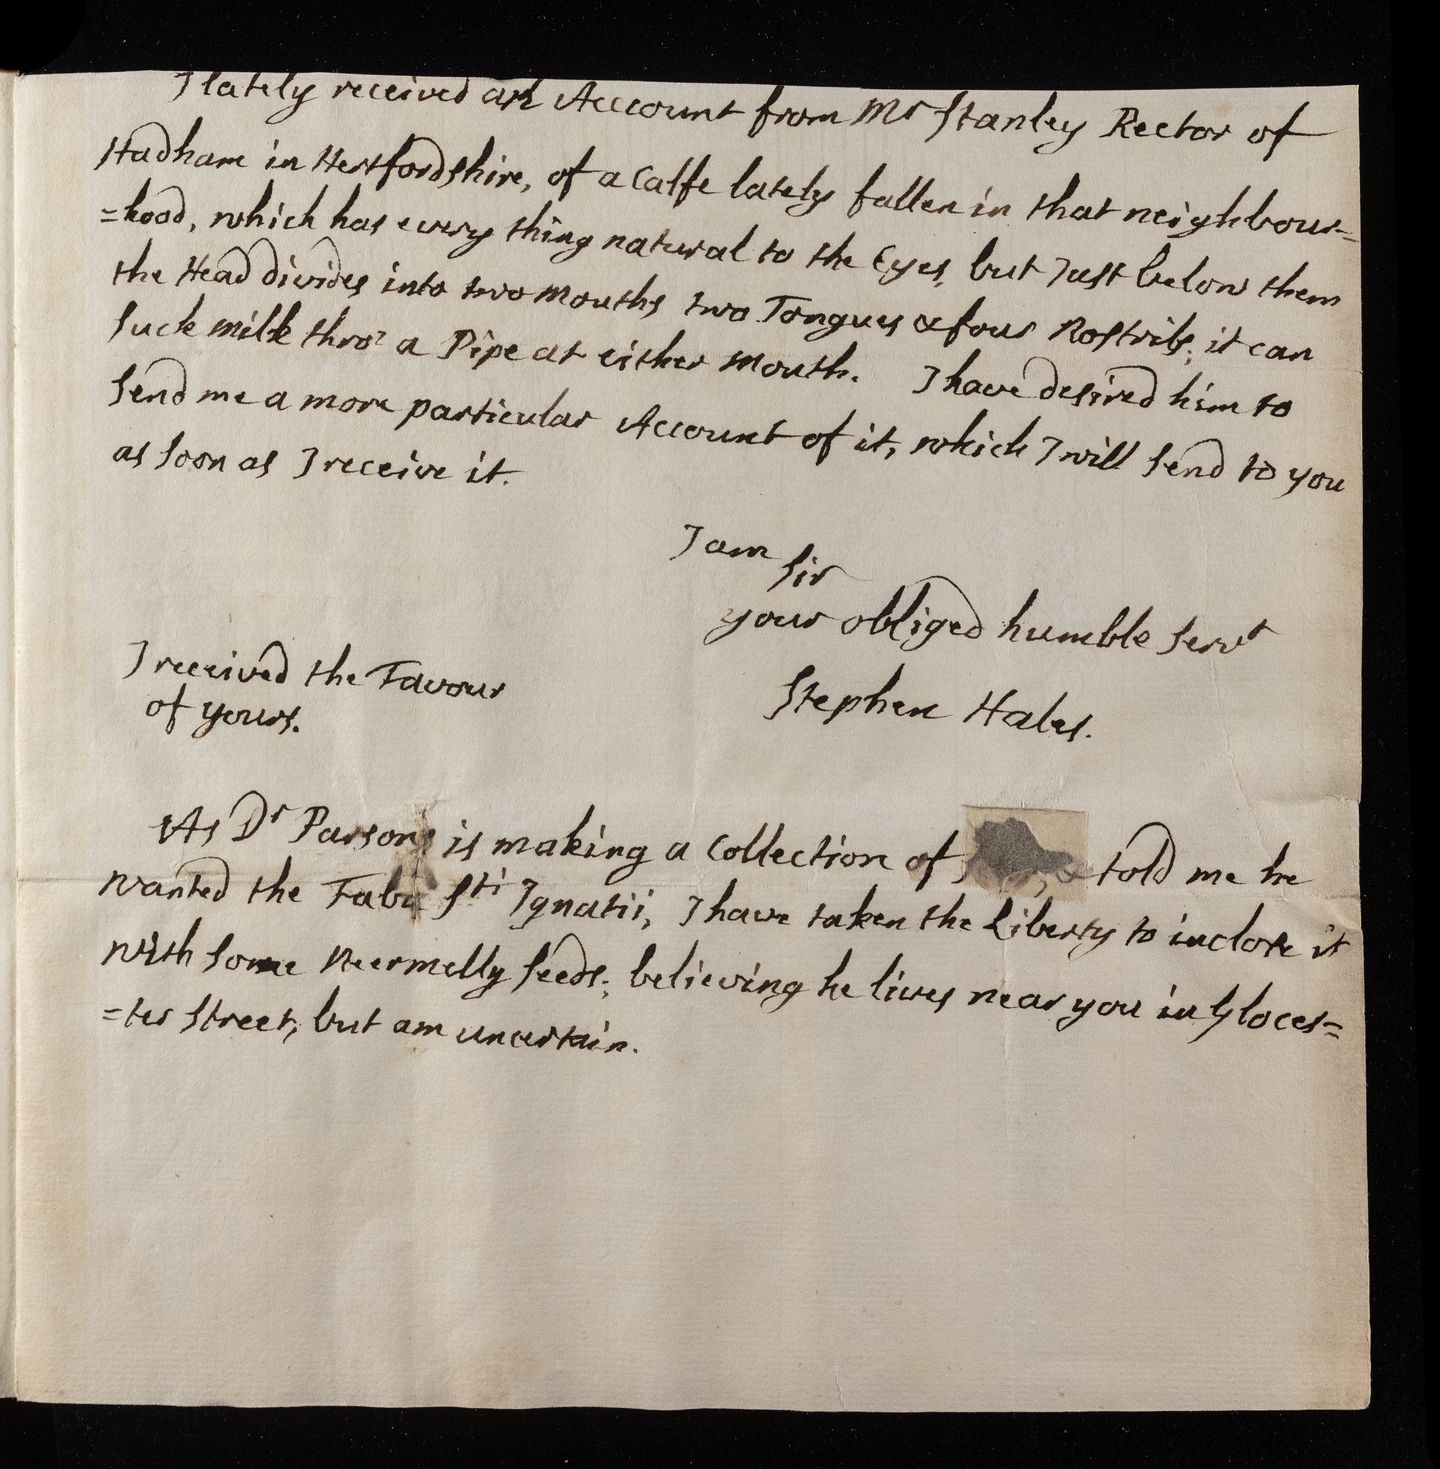 I lately received an Account from Mr Stanley Rector of
Hadham in Hertfordshire, of a Calfe lately fallen in that neighbour=
=hood, which has every thing natural to the Eyes, but Just below them
the Head divides into two Mouths two Tongues & four Nostrils; it can
Suck Milk thro' a Pipe at either Mouth. I have desired him to
Send me a more particular Account of it, which I will Send to you
as Soon as I receive it.
I am
Sir
your obliged humble Servt
Stephen Hales.
I received the Favour
of yours.
As Dr Parsons is making a Collection of & told me he
wanted the Faba Sti Ignatii, I have taken the Liberty to inclose it
with Some Neermelly Seeds; believing he lives near you in Gloces=
=ter Street, but am uncertain.